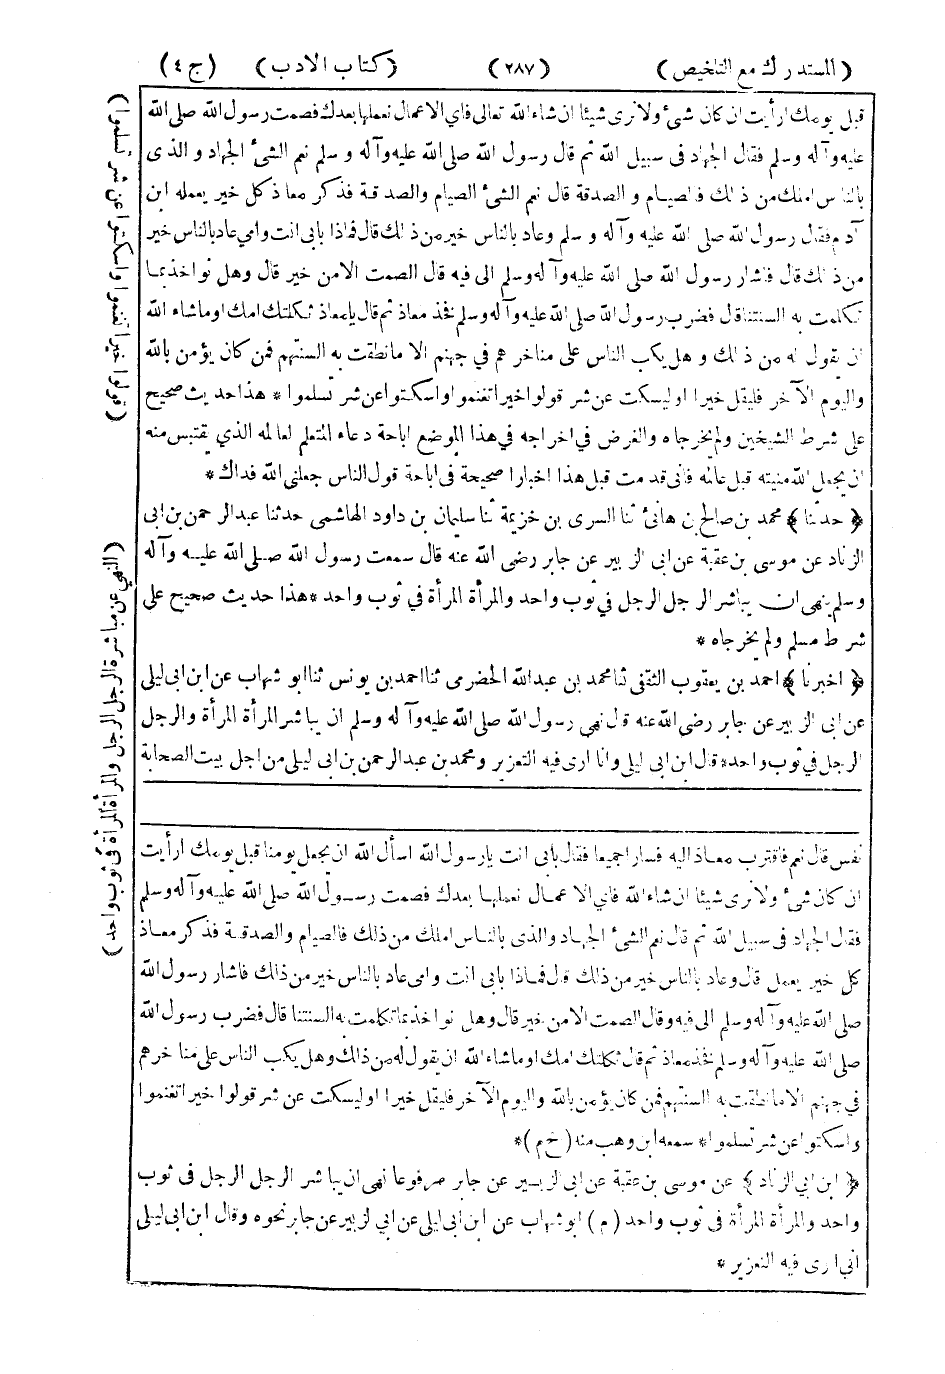 (المستدرك مع التلخيص) (٢٨٧) (كتاب الادب) (ج ٤)
قبل يومك ارأيت ان كان شىء ولا نرى شيئا ان شاء الله تعالى فاي الاعمال نعملها بعدك فصمت رسول الله صلى الله
عليه وآله وسلم فقال الجهاد فى سبيل الله ثم قال رسول الله صلى الله عليه وآله وسلم نعم الشئ الجهاد والذى
بالناس املك من ذلك فالصيام والصدقة قال نعم الشئ الصيام والصدقة فذكر معاذ كل خير يعمله ابن
آدم فقال رسول الله صلى الله عليه وآله وسلم وعاد بالناس خير من ذلك قال فماذا بابى انت وامي عاد بالناس خير
من ذلك قال فاشار رسول الله صلى الله عليه وآله وسلم الى فيه قال الصمت الا من خير قال وهل نواخذ بما
تكلمت به السنتنا قال فضرب رسول الله صلى الله عليه وآله وسلم فخذ معاذ ثم قال يا معاذ ثكلتك امك او ماشاء الله
ان يقول له من ذلك وهل يكب الناس على مناخرهم في جهنم الا ما نطقت به السنتهم فمن كان يؤمن بالله
واليوم الآخر فليقل خيرا او ليسكت عن شر قولوا خيرا تغنموا واسكتوا عن شر تسلموا * هذا حديث صحيح
على شرط الشيخين ولم يخرجاه والغرض فى اخراجه في هذا الموضع اباحة دعاء المتعلم لعالمه الذي يقتبس منه
ان يجعل الله منيته قبل عالمه فانى قدمت قبل هذا اخبارا صحيحة فى اباحة قول الناس جعلنى الله فداك *
﴿ حدثنا ﴾ محمد بن صالح بن هانئ ثنا السرى بن خزيمة ثنا سليمان بن داود الهاشمى حدثنا عبد الرحمن بن ابى
الزناد عن موسى بن عقبة عن ابى الزبير عن جابر رضى الله عنه قال سمعت رسول الله صلى الله عليه وآله
وسلم ينهى ان يباشر الرجل الرجل في ثوب واحد والمرأة المرأة في ثوب واحد * هذا حديث صحيح على
شرط مسلم ولم يخرجاه *
﴿ اخبرنا ﴾ احمد بن يعقوب الثقفى ثنا محمد بن عبد الله الحضرمى ثنا احمد بن يونس ثنا ابو شهاب عن ابن ابى ليلى
عن ابى الزبير عن جابر رضى الله عنه قال نهى رسول الله صلى الله عليه وآله وسلم ان يباشر المرأة المرأة والرجل
الرجل في ثوب واحد * قال ابن ابى ليلى وانا ارى فيه التعزير ومحمد بن عبد الرحمن بن ابى ليلى من اجل بيت الصحابة
نفس قال نعم فاقترب معاذ اليه فسارا جميعا فقال بأبى انت يا رسول الله اسأل الله ان يجعل يومنا قبل يومك ارأيت
ان كان شئ ولا نرى شيئا ان شاء الله فاي الاعمال نعملها بعدك فصمت رسول الله صلى الله عليه وآله وسلم
فقال الجهاد فى سبيل الله ثم قال نعم الشئ الجهاد والذى بالناس املك من ذلك فالصيام والصدقة فذكر معاذ
كل خير يعمل قال وعاد بالناس خير من ذلك قال فماذا بابى انت وامى عاد بالناس خير من ذلك فاشار رسول الله
صلى الله عليه وآله وسلم الى فيه وقال الصمت الا من خير قال وهل نواخذ بما تكلمت به السنتنا قال فضرب رسول الله
صلى الله عليه وآله وسلم فخذ معاذ ثم قال ثكلتك امك او ماشاء الله ان يقول له من ذلك وهل يكب الناس على مناخرهم
في جهنم الا ما نطقت به السنتهم فمن كان يؤمن بالله واليوم الآخر فليقل خيرا او ليسكت عن شر قولوا خيرا تغنموا
واسكتوا عن شر تسلموا * سمعه ابن وهب منه (خ م) *
﴿ ابن ابي الزناد ﴾ عن موسى بن عقبة عن ابى الزبير عن جابر مرفوعا نهى ان يباشر الرجل الرجل فى ثوب
واحد والمرأة المرأة فى ثوب واحد (م) ابو شهاب عن ابن ابى ليلى عن ابي الزبير عن جابر نحوه وقال ابن ابى ليلى
انى ارى فيه التعزير *
(قولوا خيرا تغنموا واسكتوا عن شر تسلموا)
(النهي عن مباشرة الرجل الرجل والمرأة المرأة في ثوب واحد)